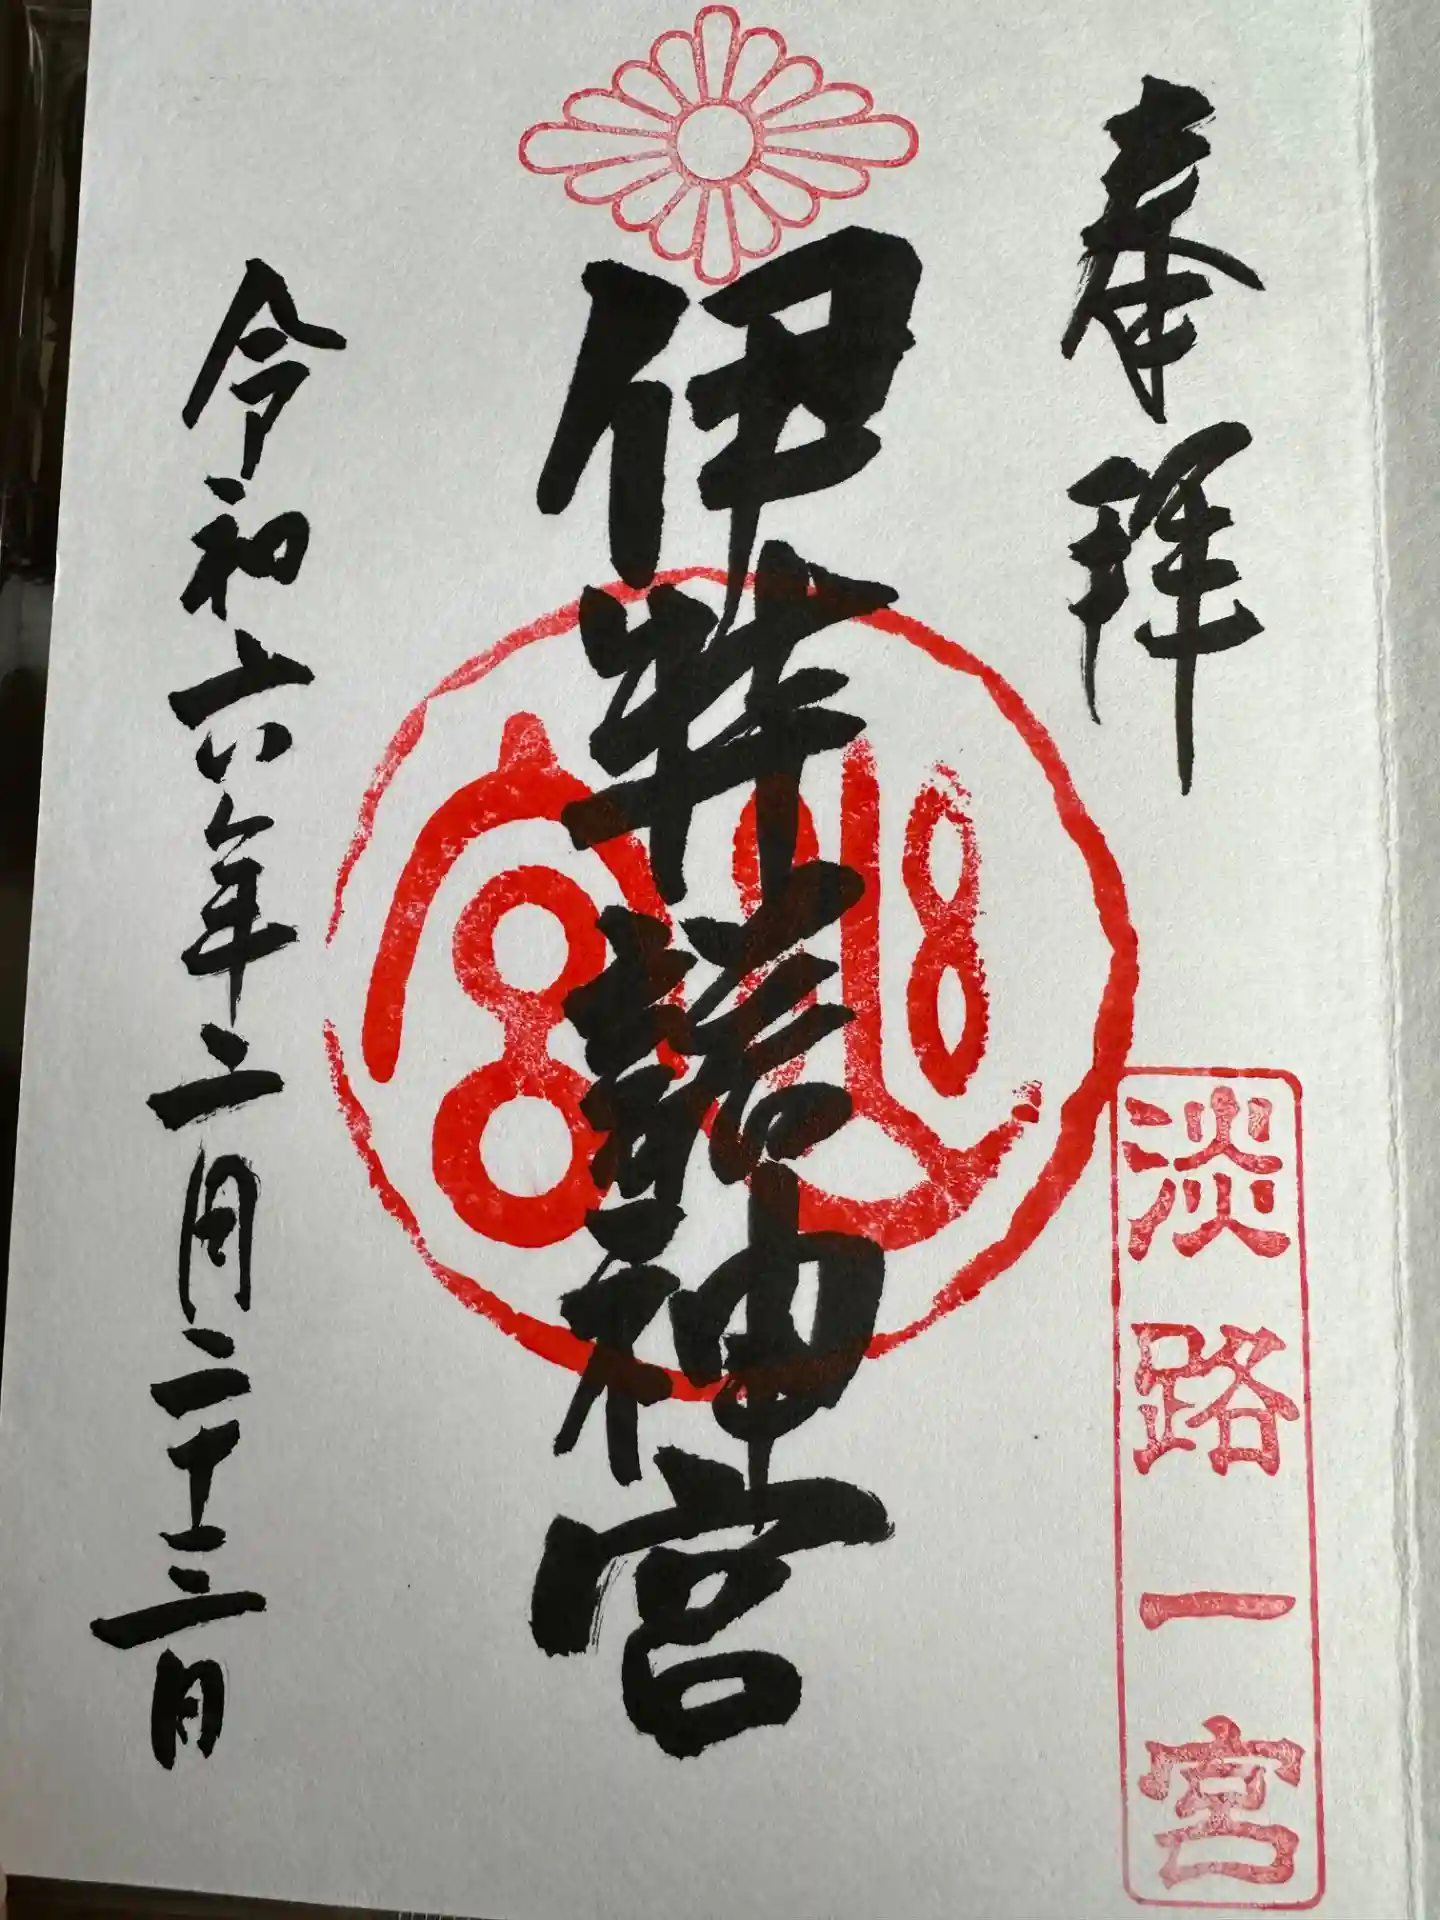 奉拝
淡路一宮
伊弉諾神宮
令和六年二月二十三日